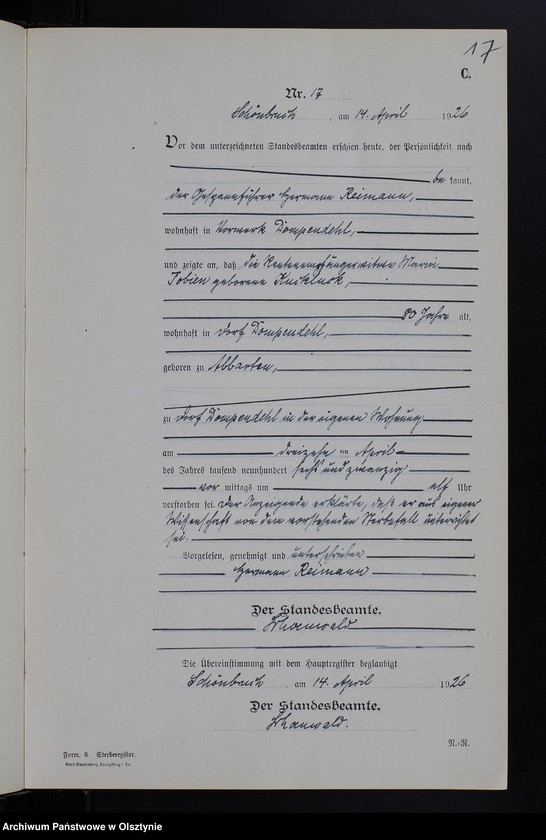 17
C.
Nr. 17
Schönbruch, am 14. April 1926
Vor dem unterzeichneten Standesbeamten erschien heute, der Persönlichkeit nach
be kannt,
der Gespannführer Hermann Reimann,
wohnhaft in Vorwerk Dompendehl,
und zeigte an, daß die Rentenempfängerwitwe Marie
Tobien geborene
80 Jahre alt,
wohnhaft in Dorf Dompendehl,
geboren zu Abbarten,
zu Dorf Dompendehl in der eigenen Wohnung
am dreizehn ten April
des Jahres tausend neunhundert sechs und zwanzig
vor mittags um elf Uhr
verstorben sei. Der Anzeigende erklärte, daß er aus eigener
Wissenschaft von dem vorstehenden Sterbefall unterrichtet
sei.
Vorgelesen, genehmigt und unterschrieben
Hermann Reimann
Der Standesbeamte.
Die Übereinstimmung mit dem Hauptregister beglaubigt
Schönbruch, am 14. April 1926
Der Standesbeamte.
R.-R.
Form. 6 Sterberegister.
Archiwum Państwowe w Olsztynie